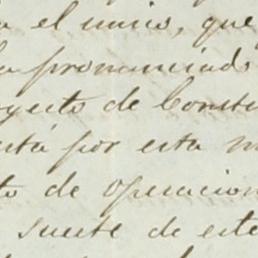 a el unico, que
a pronunciado
oyecto de Consti
stá por esta m
to de operacion
suerte de este